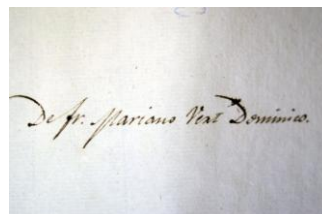 De fr. Mariano Vext Dominico.